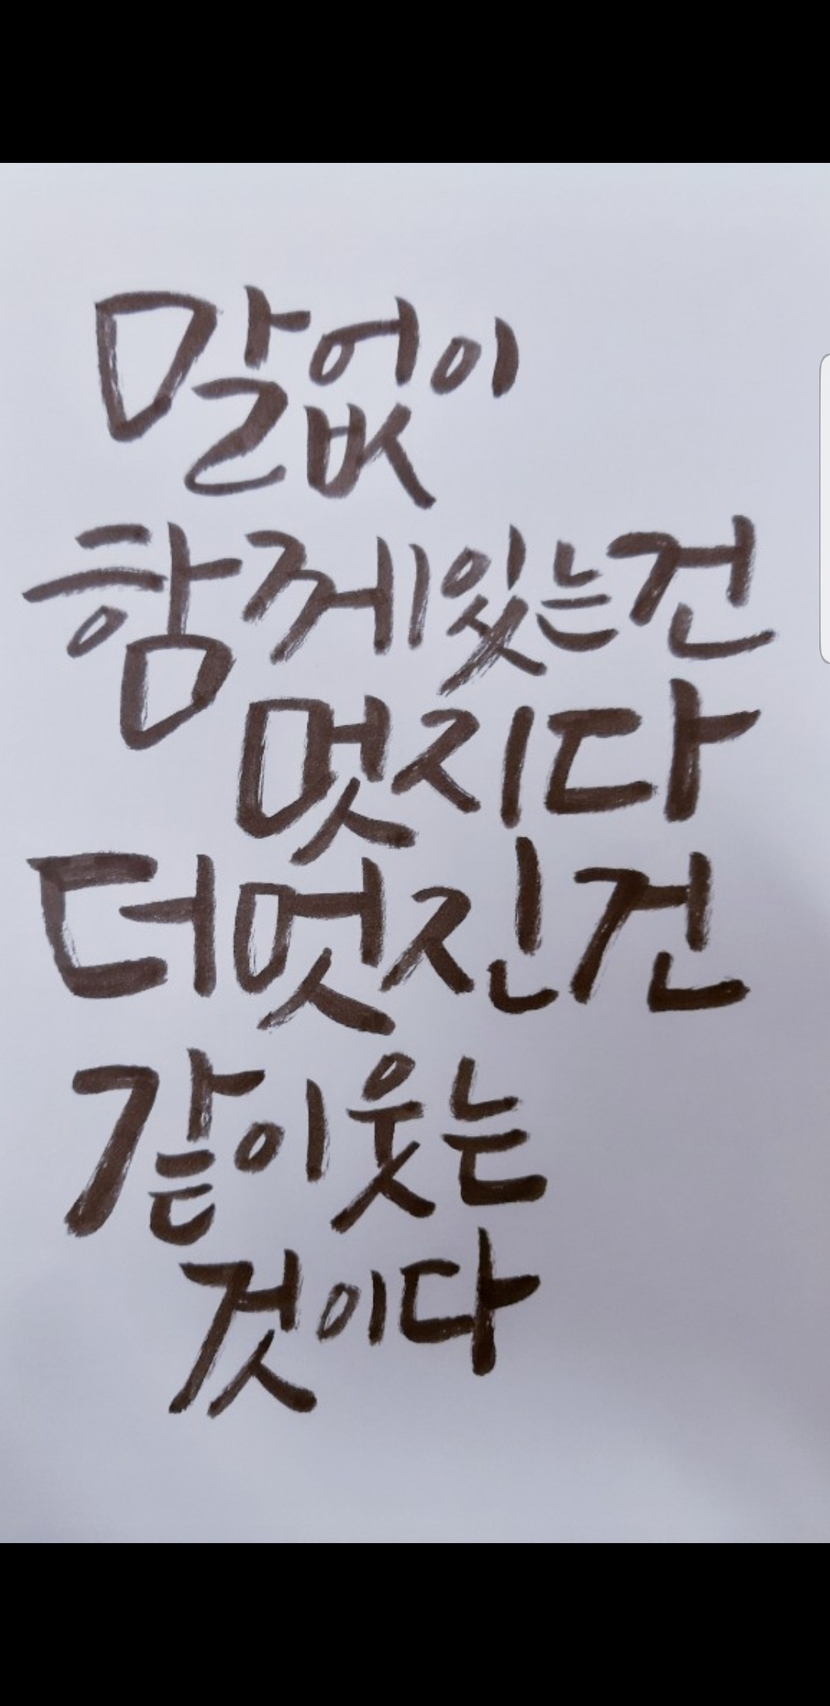 말없이
함께 있는건
멋지다
더 멋진건
같이 웃는
것이다